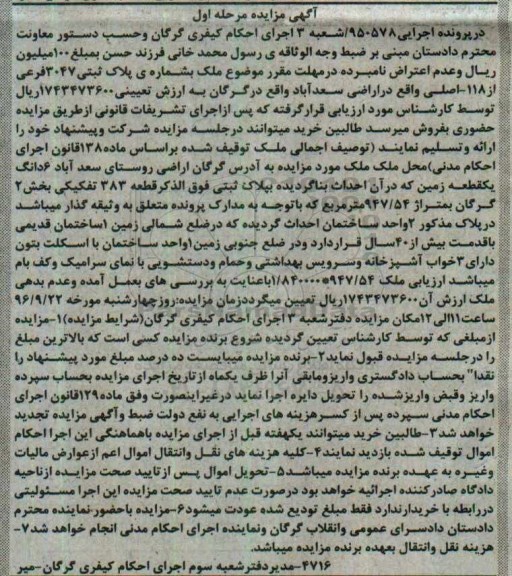 آگهی مزایده مرحله اول
درپرونده اجرایی۹۵۰۵۷۸/شعبه ۳ اجرای احکام کیفری گرگان وحسب دستور معاونت
محترم دادستان مبنی بر ضبط وجه الوثاقه ی رسول محمد خانی فرزند حسن بمبلغ۱۰۰میلیون
ریال وعدم اعتراض نامبرده درمهلت مقرر موضوع ملک بشماره ی پلاک ثبتی۳۰۴۷فرعی
از۱۱۸-اصلی واقع دراراضی سعدآباد واقع درگرگان به ارزش تعیینی۱۷۴۳۴۷۳۶۰۰ریال
توسط کارشناس مورد ارزیابی قرارگرفته که پس ازاجرای تشریفات قانونی ازطریق مزایده
حضوری بفروش میرسد طالبین خرید میتوانند درجلسه مزایده شرکت وپیشنهاد خود را
ارائه وتسلیم نمایند (توصیف اجمالی ملک توقیف شده براساس ماده۱۳۸قانون اجرای
احکام مدنی)محل ملک ملک مورد مزایده به آدرس گرگان اراضی روستای سعد آباد ۶دانگ
یکقطعه زمین که درآن احداث بناگردیده بپلاک ثبتی فوق الذکرقطعه ۳۸۳ تفکیکی بخش۲
گرگان بمتراژ ۹۴۷/۵۴مترمربع که باتوجه به مدارک پرونده متعلق به وثیقه گذار میباشد
درپلاک مذکور ۲واحد ساختمان احداث گردیده که درضلع شمالی زمین ۱ساختمان قدیمی
باقدمت بیش از۴۰سال قراردارد ودر ضلع جنوبی زمین۱واحد ساختمان با اسکلت بتون
دارای۳خواب آشپزخانه وسرویس بهداشتی وحمام ودستشویی با نمای سرامیک وکف بام
میباشد ارزیابی ملک ۹۴۷/۵۴*۱۸۴۰۰۰۰باعنایت به بررسی های بعمل آمده وعدم بدهی
ملک ارزش آن۱۷۴۳۴۷۳۶۰۰ریال تعیین میگرددزمان مزایده:روزچهارشنبه مورخه ۹۶/۹/۲۲
ساعت۱۱الی۱۲مکان مزایده دفترشعبه ۳اجرای احکام کیفری گرگان(شرایط مزایده)۱-مزایده
ازمبلغی که توسط کارشناس تعیین گردیده شروع برنده مزایده کسی است که بالاترین مبلغ
را درجلسه مزایده قبول نماید۲-برنده مزایده میبایست ده درصد مبلغ مورد پیشنهاد را
نقدا" بحساب دادگستری واریزومابقی آنرا ظرف یکماه ازتاریخ اجرای مزایده بحساب سپرده
واریز وقبض واریزشده را تحویل دایره اجرا نماید درغیراینصورت وفق ماده۱۲۹قانون اجرای
احکام مدنی سپرده پس از کسرهزینه های اجرایی به نفع دولت ضبط وآگهی مزایده تجدید
خواهد شد۳-طالبین خرید میتوانند یکهفته قبل از اجرای مزایده باهماهنگی این اجرا احکام
اموال توقیف شده بازدید نمایند۴-کلیه هزینه های نقل وانتقال اموال اعم ازعوارض مالیات
وغیره به عهده برنده مزایده میباشد۵-تحویل اموال پس ازتایید صحت مزایده ازناحیه
دادگاه صادرکننده اجرائیه خواهد بود درصورت عدم تایید صحت مزایده این اجرا مسئولیتی
دررابطه با خریدارندارد فقط مبلغ تودیع شده عودت میشود۶-مزایده باحضورنماینده محترم
دادستان دادسرای عمومی وانقلاب گرگان ونماینده اجرای احکام مدنی انجام خواهد شد۷-
هزینه نقل وانتقال بعهده برنده مزایده میباشد.
۴۷۱۶-مدیردفترشعبه سوم اجرای احکام کیفری گرگان-میر